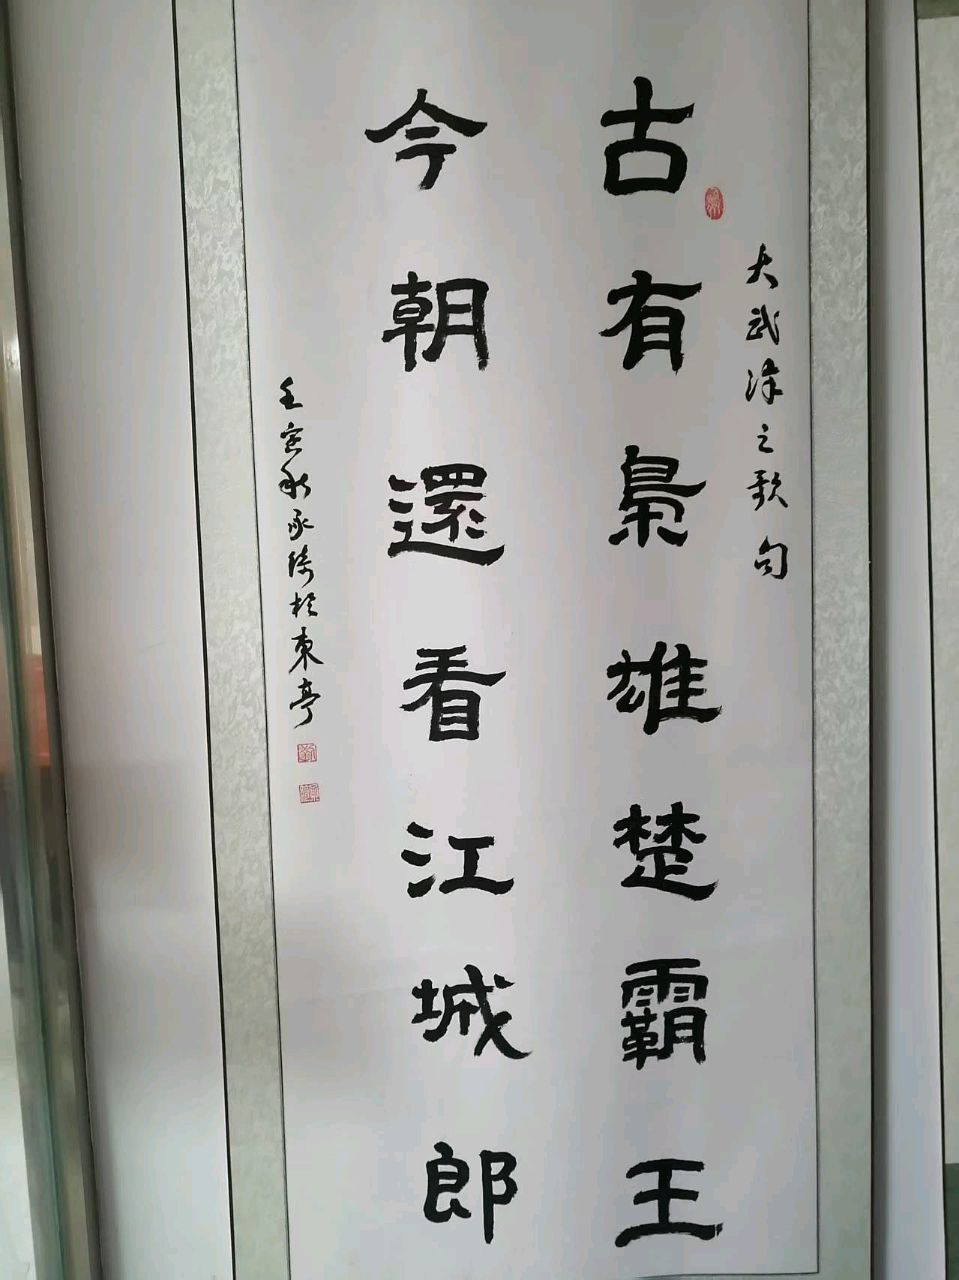 大武漢之歌句
古有梟雄楚霸王
今朝還看江城郎
壬寅秋承琦於東亭